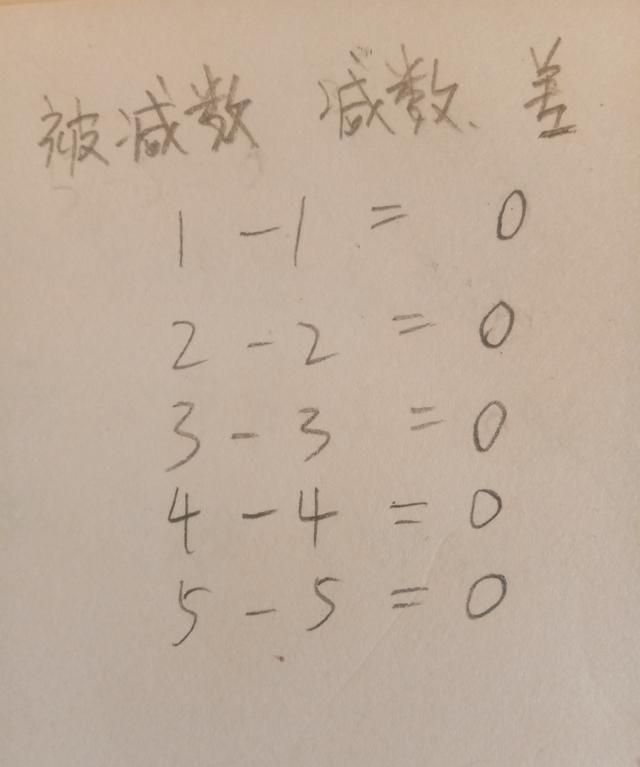 被减数 减数、差
1 - 1 = 0
2 - 2 = 0
3 - 3 = 0
4 - 4 = 0
5 - 5 = 0